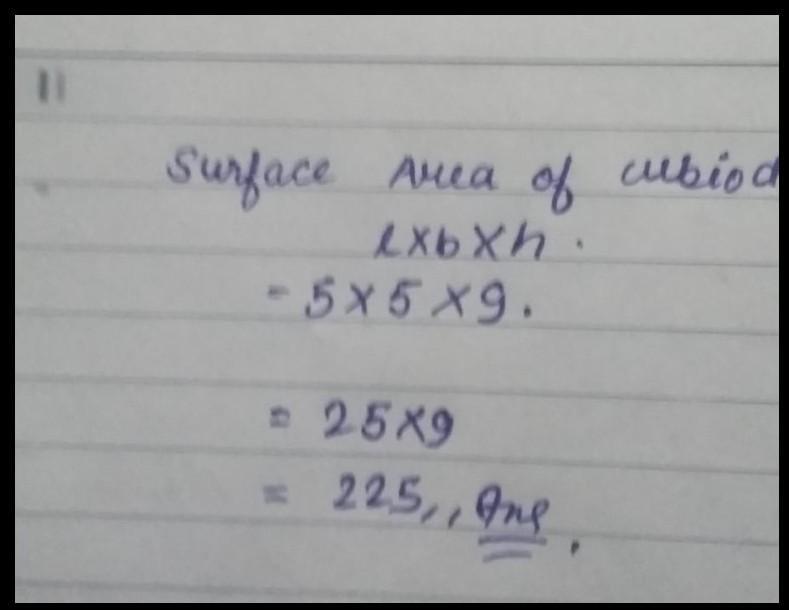 11
Surface Area of cubiod
l×b×h.
= 5×5×9.
= 25×9
= 225,, Ans.